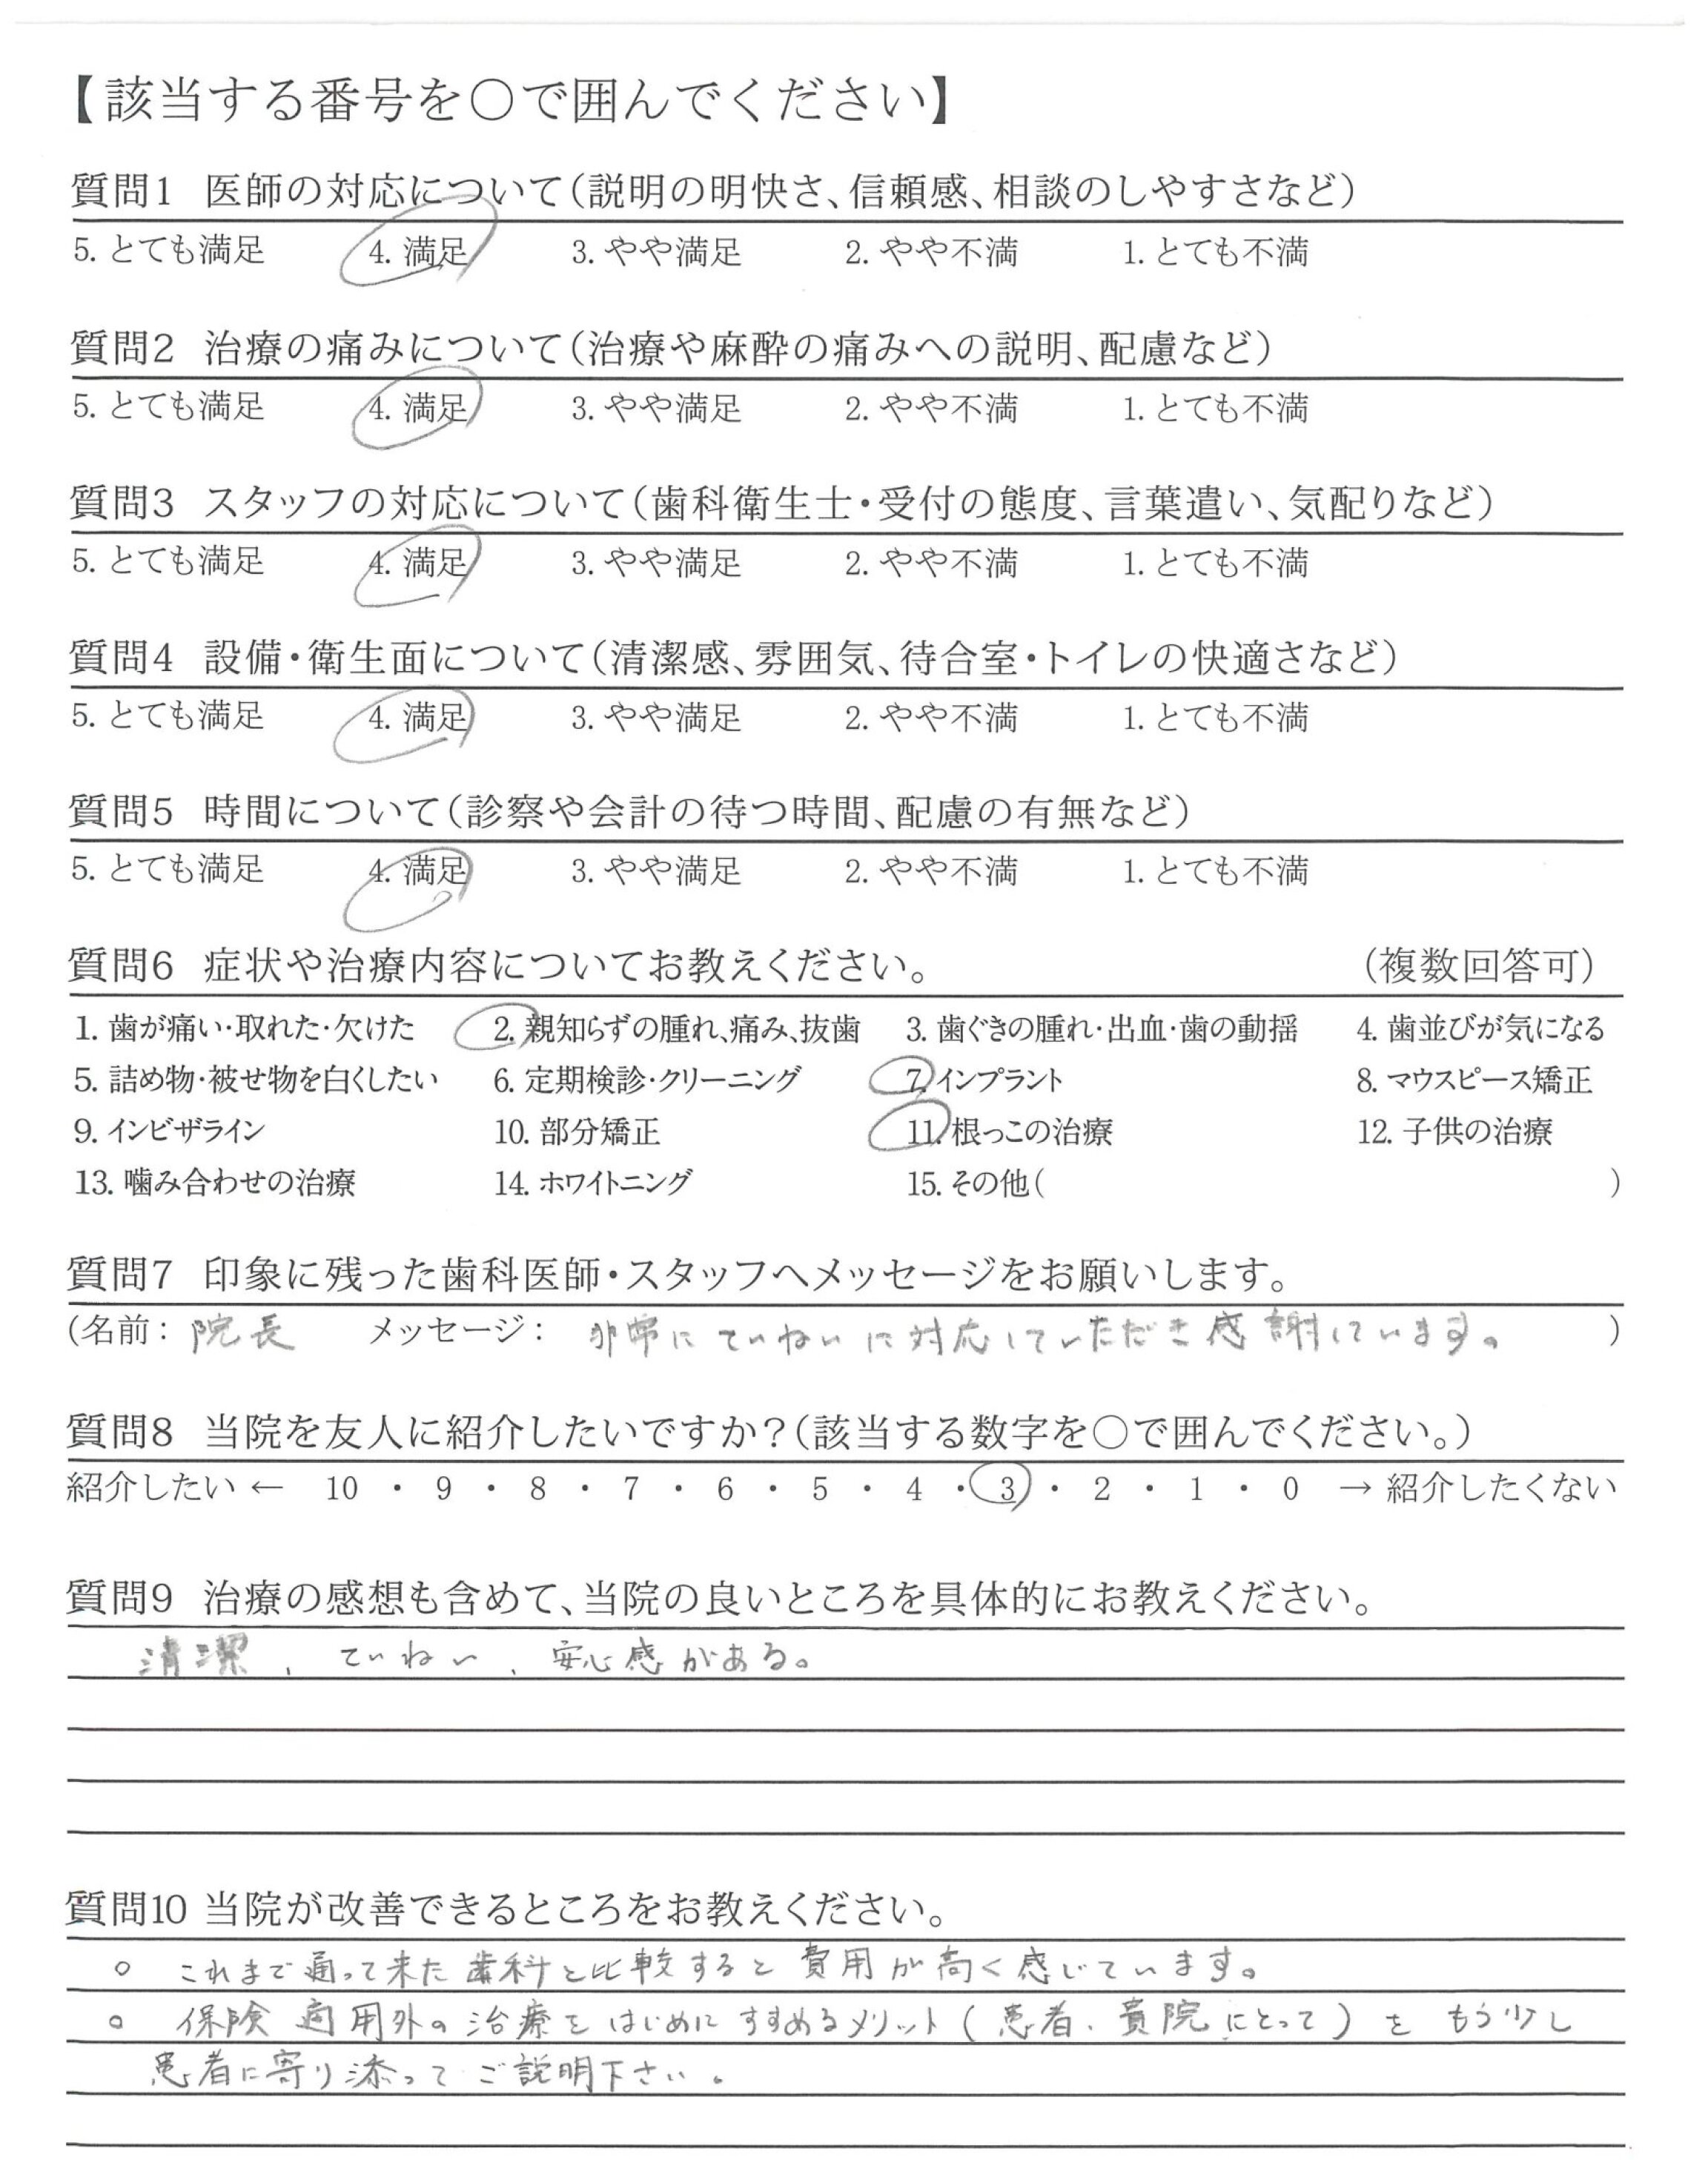 【該当する番号を〇で囲んでください】
質問1 医師の対応について(説明の明快さ、信頼感、相談のしやすさなど)
5. とても満足 4. 満足 3. やや満足 2. やや不満 1. とても不満
質問2 治療の痛みについて(治療や麻酔の痛みへの説明、配慮など)
5. とても満足 4. 満足 3. やや満足 2. やや不満 1. とても不満
質問3 スタッフの対応について(歯科衛生士・受付の態度、言葉遣い、気配りなど)
5. とても満足 4. 満足 3. やや満足 2. やや不満 1. とても不満
質問4 設備・衛生面について(清潔感、雰囲気、待合室・トイレの快適さなど)
5. とても満足 4. 満足 3. やや満足 2. やや不満 1. とても不満
質問5 時間について(診察や会計の待つ時間、配慮の有無など)
5. とても満足 4. 満足 3. やや満足 2. やや不満 1. とても不満
質問6 症状や治療内容についてお教えください。 (複数回答可)
1. 歯が痛い・取れた・欠けた 2. 親知らずの腫れ、痛み、抜歯 3. 歯ぐきの腫れ・出血・歯の動揺 4. 歯並びが気になる
5. 詰め物・被せ物を白くしたい 6. 定期検診・クリーニング 7. インプラント 8. マウスピース矯正
9. インビザライン 10. 部分矯正 11. 根っこの治療 12. 子供の治療
13. 噛み合わせの治療 14. ホワイトニング 15. その他( )
質問7 印象に残った歯科医師・スタッフへメッセージをお願いします。
(名前: 院長 メッセージ: 非常にていねいに対応していただき感謝しています。 )
質問8 当院を友人に紹介したいですか?(該当する数字を〇で囲んでください。)
紹介したい ← 10 ・ 9 ・ 8 ・ 7 ・ 6 ・ 5 ・ 4 ・ 3 ・ 2 ・ 1 ・ 0 → 紹介したくない
質問9 治療の感想も含めて、当院の良いところを具体的にお教えください。
清潔、ていねい、安心感がある。
質問10 当院が改善できるところをお教えください。
○ これまで通って来た歯科と比較すると費用が高く感じています。
○ 保険適用外の治療をはじめにすすめるメリット(患者、貴院にとって)をもう少し
患者に寄り添ってご説明下さい。